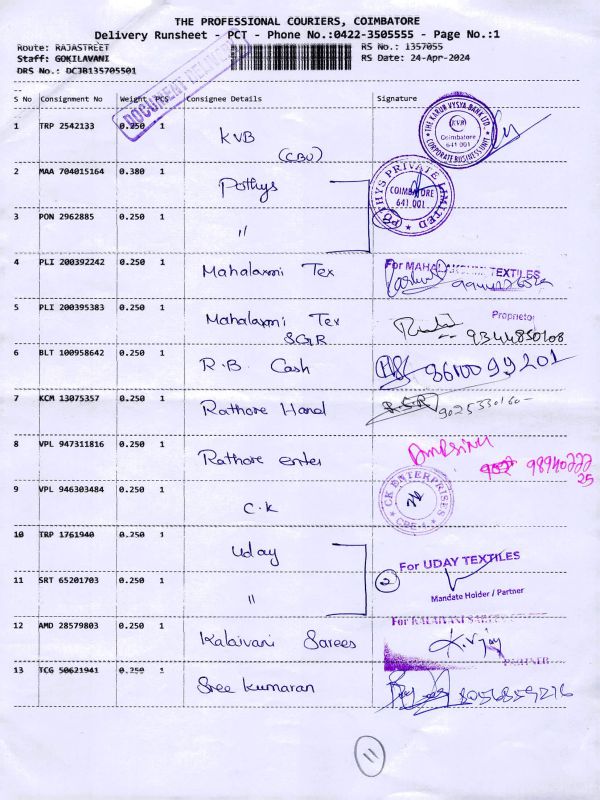 THE PROFESSIONAL COURIERS, COIMBATORE
Delivery Runsheet - PCT - Phone No.:0422-3505555 - Page No.:1
Route: RAJASTREET RS No.: 1357055
Staff: GOKILAVANI RS Date: 24-Apr-2024
DRS No.: DCJB135705501
S No Consignment No Weight PCS Consignee Details Signature
1 TRP 2542133 0.250 1 KVB
(CBU)
THE KARUR VYSYA BANK LTD
KVB
Coimbatore
641 001
CORPORATE BUSINESS UNIT
2 MAA 704015164 0.380 1 Pothys
POTHYS PRIVATE LIMITED
COIMBATORE
641 001
3 PON 2962885 0.250 1 "
4 PLI 200392242 0.250 1 Mahalaxmi Tex
For MAHALAKSHMI TEXTILES
5 PLI 200395383 0.250 1 Mahalaxmi Tex
SGR
Proprietor
9344850108
6 BLT 100958642 0.250 1 R.B. Cash
8610099201
7 KCM 13075357 0.250 1 Rathore Hand
9025330160
8 VPL 947311816 0.250 1 Rathore enter
98940222
25
9 VPL 946303484 0.250 1 C.K
CK ENTERPRISES
CBE-1
10 TRP 1761940 0.250 1 Uday
For UDAY TEXTILES
11 SRT 65201703 0.250 1 "
2
Mandate Holder / Partner
12 AMD 28579803 0.250 1 Kalaivani Sarees
For KALAIVANI SAREES
K.Vjay
PARTNER
13 TCG 50621941 0.250 1 Sree kumaran
8056859276
11